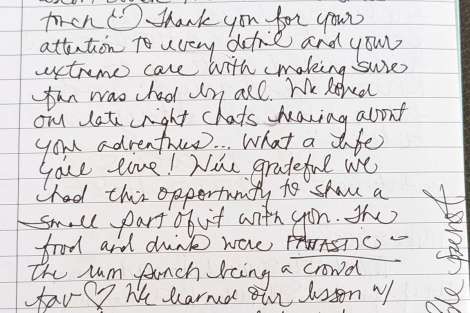 touch ☺ Thank you for your
attention to every detail and your
extreme care with making sure
fun was had by all. We loved
our late night chats hearing about
your adventures... What a life
you're live! We're grateful we
had this opportunity to share a
small part of it with you. The
food and drink were FANTASTIC -
the rum punch being a crowd
fav ♡ We learned our lesson w/